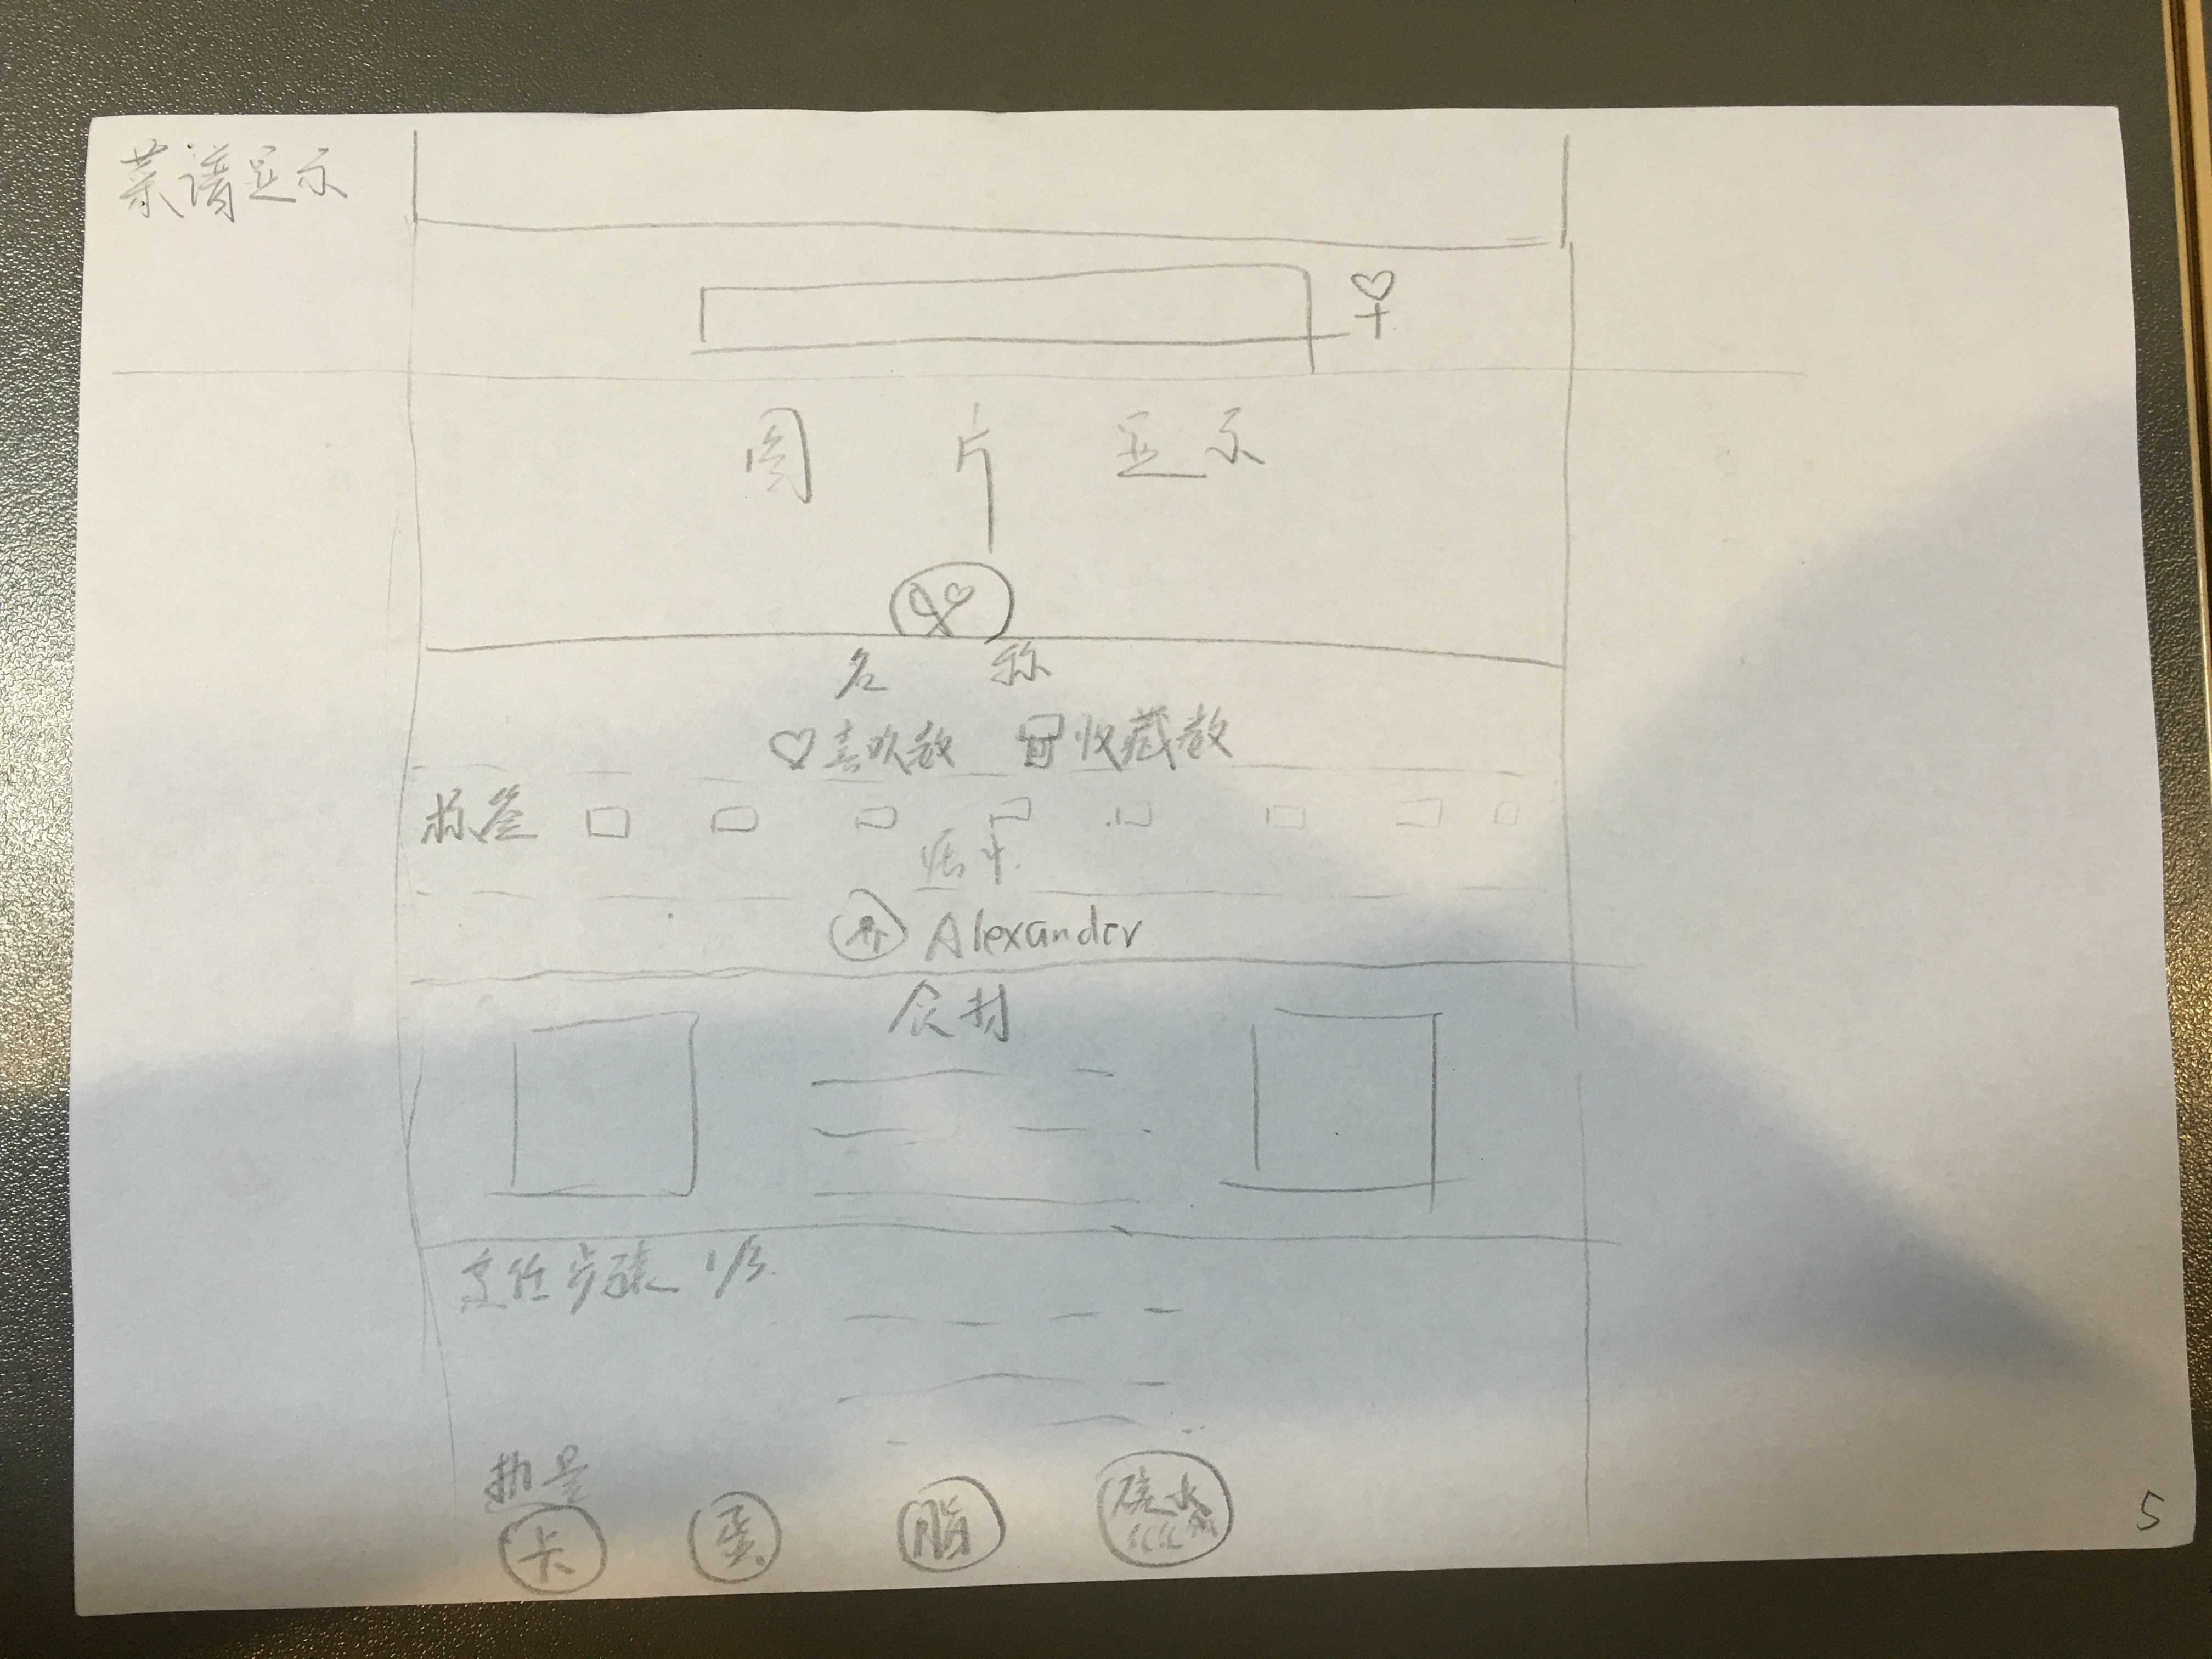 菜谱显示
图片显示
名称
喜欢数 收藏数
标签
Alexander
食材
烹饪步骤 1/3
热量
卡 蛋 脂 碳水
5